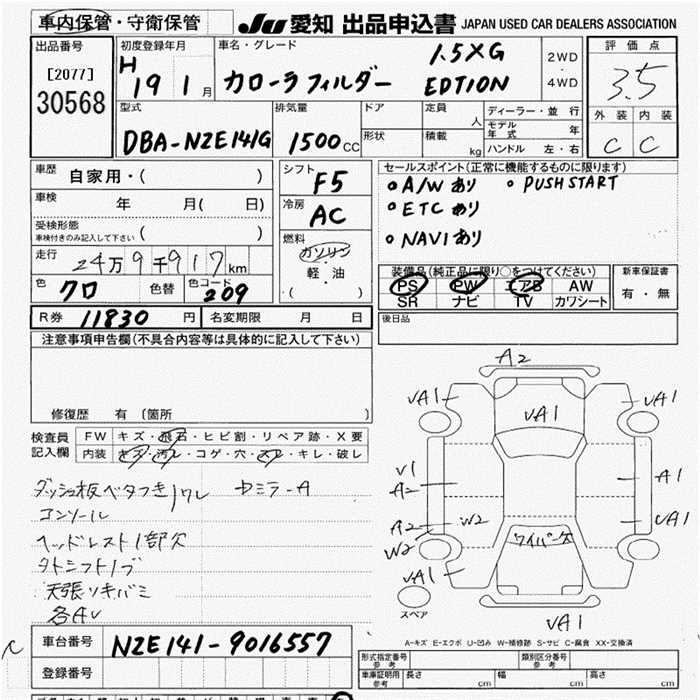 車内保管・守衛保管
JU 愛知 出品申込書 JAPAN USED CAR DEALERS ASSOCIATION
出品番号
[2077]
30568
初度登録年月
H 19 1月
車名・グレード
1.5XG
カローラフィルダー EDTION
2WD
・
4WD
評価点
3.5
外装 内装
C C
型式
DBA-NZE141G
排気量
1500CC
ドア
形状
定員
人
積載
kg
ディーラー・並行
モデル年式 年
ハンドル 左・右
車歴
自家用・( )
車検
年 月( 日)
受検形態
車検付きのみ記入して下さい ( )
走行
24万9千917km
色
クロ
色替
色コード
209
シフト
F5
冷房
AC
燃料
ガソリン
軽・油
・( )
セールスポイント(正常に機能するものに限ります)
A/Wあり PUSH START
ETCあり
NAVIあり
装備品(純正品に限り○をつけてください)
PS PW エアB AW
SR ナビ TV カワシート
新車保証書
有・無
後日品
R券 11830円
名変期限 月 日
注意事項申告欄(不具合内容等は具体的に記入して下さい)
修復歴 有 〔箇所 〕
検査員
記入欄
FW キズ・飛石・ヒビ割・リペア跡・X要
内装 キズ・汚レ・コゲ・穴・スレ・キレ・破レ
ダッシュ板ベタつき ワレ
コンソール
ヘッドレスト1部欠
天張
各AU
A2
UA1
UA1
UA1
U1
A2
A1
A2
W2
W2
UA1
UA1
ワイパー欠
UA1
スペア
A-キズ E-エクボ U-凹み W-補修跡 S-サビ C-腐食 XX-交換済
車台番号 NZE141-9016557
登録番号
形式指定番号
参考
類別区分番号
参考
車庫証明用
参考
長さ cm
幅 cm
高さ cm